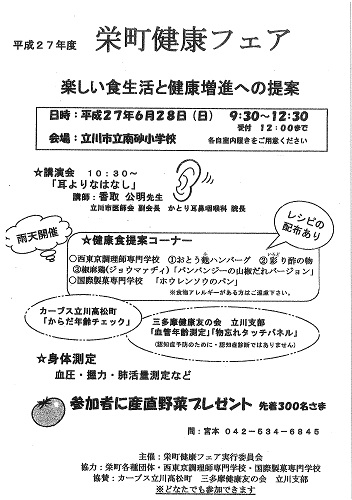 平成27年度 栄町健康フェア
楽しい食生活と健康増進への提案
日時:平成27年6月28日(日) 9:30~12:30
受付 12:00まで
会場:立川市立南砂小学校 各自室内履きをご用意ください
☆講演会 10:30~
「耳よりなはなし」
講師:香取 公明先生
立川市医師会 副会長 かとり耳鼻咽喉科 院長
雨天開催
レシピの
配布あり
☆健康食提案コーナー
○西東京調理師専門学校 ①おとう麩ハンバーグ ②彩り酢の物
③椒麻鶏(ジョウマァヂィ)「バンバンジーの山椒だれバージョン」
○国際製菓専門学校 「ホウレンソウのパン」
※食物アレルギーがある方はご遠慮下さい。
カーブス立川高松町
「からだ年齢チェック」
三多摩健康友の会 立川支部
「血管年齢測定」「物忘れタッチパネル」
(認知症予防のために・認知症診断ではありません)
☆身体測定
血圧・握力・肺活量測定など
参加者に産直野菜プレゼント 先着300名さま
問:宮本 042-534-6845
主催:栄町健康フェア実行委員会
協力:栄町各種団体・西東京調理師専門学校・国際製菓専門学校
協賛:カーブス立川高松町 三多摩健康友の会 立川支部
※どなたでも参加できます